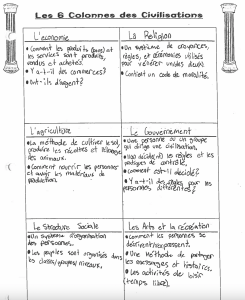 Les 6 Colonnes des Civilisations
L'économie
• Comment les produits (biens) et
les services sont produits,
vendus et achetés.
• Y a-t-il des commerces?
• Ont-ils d'argent?
La Religion
• Un système de croyances,
règles, et cérémonies utilisés
pour vénérer un/des dieu(x)
• Contient un code de moralité.
L'agriculture
• La méthode de cultiver le sol,
produire les récoltes et élevage
les animaux.
• Comment nourrir les personnes
et avoir les matériaux de
production.
Le Gouvernement
• Une personne ou un groupe
qui dirige une civilisation.
les règles et les
pratiques de contrôle.
• Comment est-il décidé?
• Y a-t-il des règles pour les
personnes différentes?
La Structure Sociale
• Un système d'organisation
des personnes.
• Les peuples sont organisés dans
les classes/groupes/niveaux.
Les Arts et la récréation
• Comment les personnes se
divertissent/reposent.
• Une méthode de partager
les messages et histoires.
• Les activités de loisir
(temps libre).